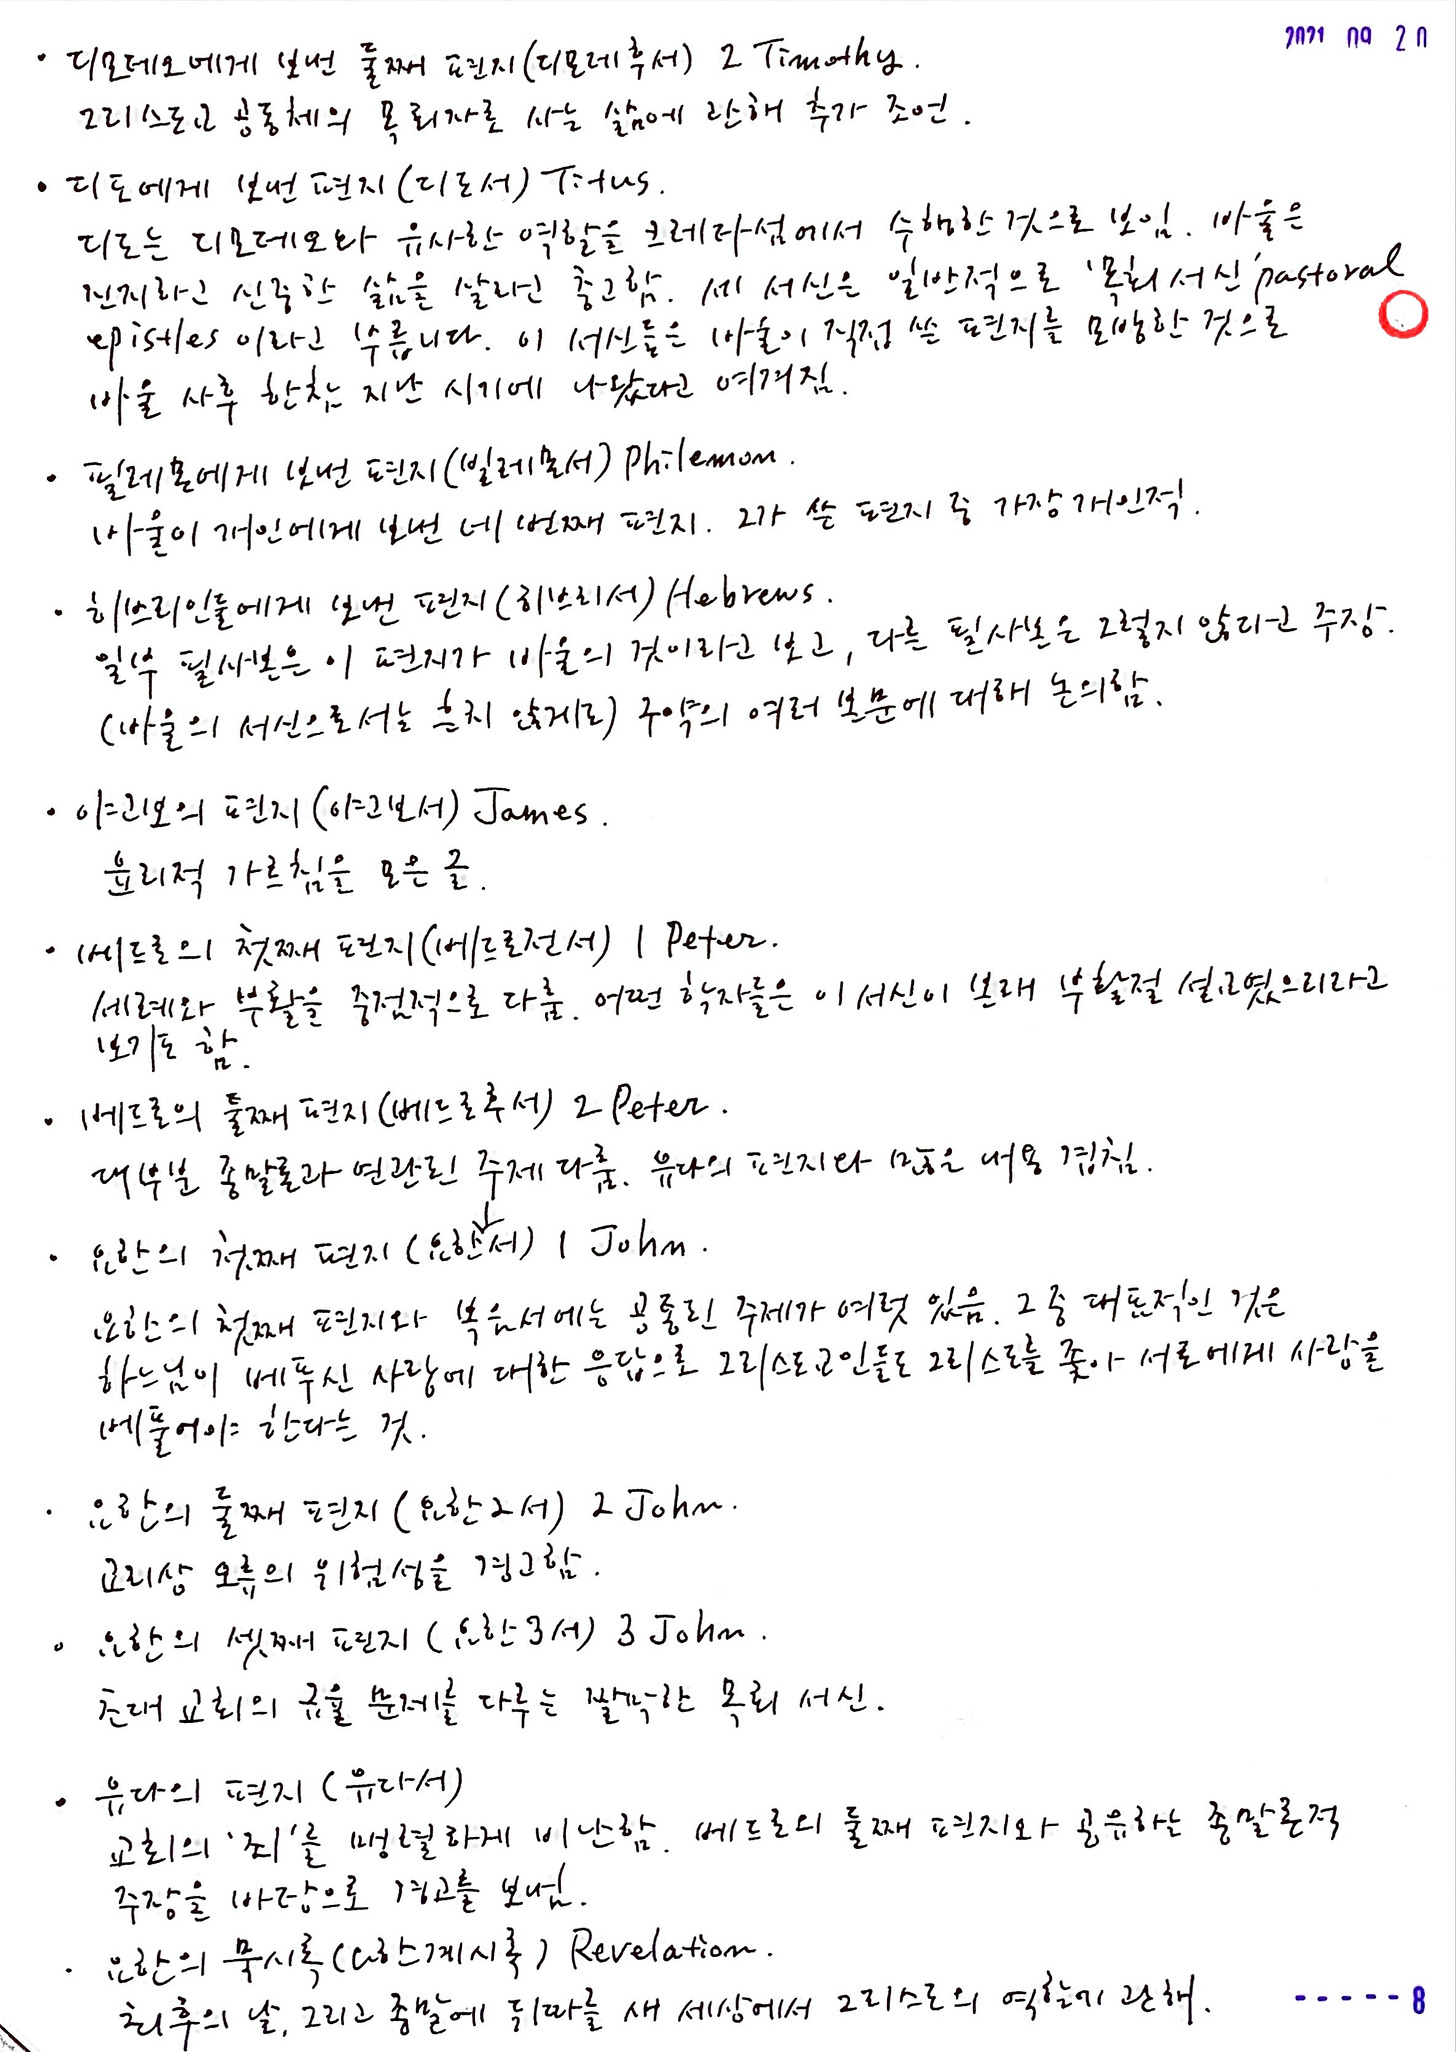 • 디모데오에게 보낸 둘째 편지(디모데후서) 2 Timothy.
그리스도교 공동체의 목회자로 사는 삶에 관해 추가 조언.
• 디도에게 보낸 편지(디도서) Titus.
디도는 디모데오와 유사한 역할을 크레타섬에서 수행한 것으로 보임. 바울은
진지하고 신중한 삶을 살라고 충고함. 세 서신은 일반적으로 '목회서신' pastoral
epistles 이라고 부릅니다. 이 서신들은 바울이 직접 쓴 편지를 모방한 것으로
바울 사후 한참 지난 시기에 나왔다고 여겨짐.
• 필레몬에게 보낸 편지(빌레몬서) Philemon.
바울이 개인에게 보낸 네 번째 편지. 그가 쓴 편지 중 가장 개인적.
• 히브리인들에게 보낸 편지(히브리서) Hebrews.
일부 필사본은 이 편지가 바울의 것이라고 보고, 다른 필사본은 그렇지 않다고 주장.
(바울의 서신으로서는 흔치 않게도) 구약의 여러 본문에 대해 논의함.
• 야고보의 편지(야고보서) James.
윤리적 가르침을 모은 글.
• 베드로의 첫째 편지(베드로전서) 1 Peter.
세례와 부활을 중점적으로 다룸. 어떤 학자들은 이 서신이 본래 부활절 설교였으리라고
보기도 함.
• 베드로의 둘째 편지(베드로후서) 2 Peter.
대부분 종말론과 연관된 주제 다룸. 유다의 편지와 많은 내용 겹침.
• 요한의 첫째 편지(요한서) 1 John.
요한의 첫째 편지와 복음서에는 공통된 주제가 여럿 있음. 그 중 대표적인 것은
하느님이 베푸신 사랑에 대한 응답으로 그리스도교인들도 그리스도를 좇아 서로에게 사랑을
베풀어야 한다는 것.
• 요한의 둘째 편지(요한2서) 2 John.
교리상 오류의 위험성을 경고함.
• 요한의 셋째 편지(요한3서) 3 John.
초대 교회의 규율 문제를 다루는 짤막한 목회 서신.
• 유다의 편지(유다서)
교회의 '죄'를 맹렬하게 비난함. 베드로의 둘째 편지와 공유하는 종말론적
주장을 바탕으로 경고를 보냄.
• 요한의 묵시록(요한계시록) Revelation.
최후의 날, 그리고 종말에 뒤따를 새 세상에서 그리스도의 역할에 관해.
-----8